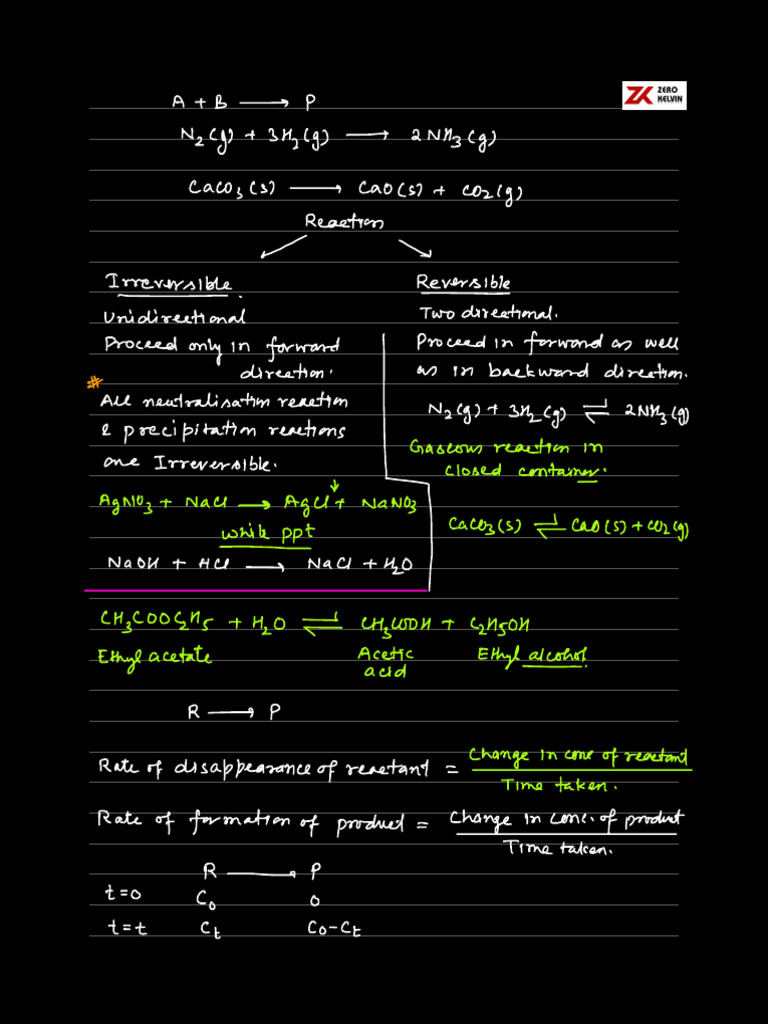 ZK ZERO KELVIN
A + B ⟶ P
N₂(g) + 3H₂(g) ⟶ 2NH₃(g)
CaCO₃(s) ⟶ CaO(s) + CO₂(g)
Reaction
Irreversible.
Unidirectional
Proceed only in forward
direction.
# All neutralisation reaction
& precipitation reactions
are Irreversible.
AgNO₃ + NaCl ⟶ AgCl↓ + NaNO₃
white ppt
NaOH + HCl ⟶ NaCl + H₂O
Reversible
Two directional.
Proceed in forward as well
as in backward direction.
N₂(g) + 3H₂(g) ⇌ 2NH₃(g)
Gaseous reaction in
closed container.
CaCO₃(s) ⇌ CaO(s) + CO₂(g)
CH₃COOC₂H₅ + H₂O ⇌ CH₃COOH + C₂H₅OH
Ethyl acetate Acetic acid Ethyl alcohol
R ⟶ P
Rate of disappearance of reactant = Change in conc of reactant
Time taken.
Rate of formation of product = Change in conc. of product
Time taken.
R ⟶ P
t=0 C₀ 0
t=t Cₜ C₀-Cₜ